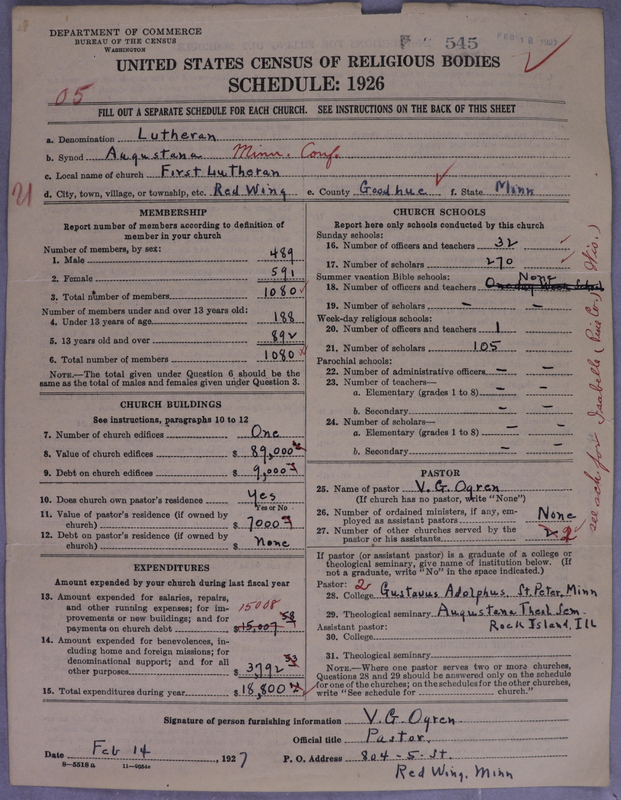 DEPARTMENT OF COMMERCE
BUREAU OF THE CENSUS
WASHINGTON
545
UNITED STATES CENSUS OF RELIGIOUS BODIES
SCHEDULE: 1926
05
FILL OUT A SEPARATE SCHEDULE FOR EACH CHURCH. SEE INSTRUCTIONS ON THE BACK OF THIS SHEET
a. Denomination Lutheran
b. Synod Augustana Minn. Conf.
c. Local name of church First Lutheran
21
d. City, town, village, or township, etc. Red Wing e. County Goodhue f. State Minn
MEMBERSHIP
Report number of members according to definition of
member in your church
Number of members, by sex:
1. Male 489
2. Female 591
3. Total number of members 1080
Number of members under and over 13 years old:
4. Under 13 years of age 188
5. 13 years old and over 892
6. Total number of members 1080
NOTE.—The total given under Question 6 should be
same as the total of males and females given under Question 3.
CHURCH BUILDINGS
See instructions, paragraphs 10 to 12
7. Number of church edifices One
8. Value of church edifices $ 89,000
9. Debt on church edifices $ 9,000
10. Does church own pastor's residence Yes
Yes or No
11. Value of pastor's residence (if owned by
church) $ 7000
12. Debt on pastor's residence (if owned by
church) $ None
EXPENDITURES
Amount expended by church during last fiscal year
13. Amount expended for salaries, repairs,
and other running expenses; for im-
provements or new buildings; and for
payments on church debt $ 15,007 58
15008
14. Amount expended for benevolences, in-
cluding home and foreign missions; for
denominational support; and for all
other purposes $ 3792 33
15. Total expenditures during year $ 18,800
CHURCH SCHOOLS
Report here only schools conducted by this church
Sunday schools:
16. Number of officers and teachers 32
17. Number of scholars 270
Summer vacation Bible schools:
18. Number of officers and teachers None
19. Number of scholars — —
Week-day religious schools:
20. Number of officers and teachers 1
21. Number of scholars 105
Parochial schools:
22. Number of administrative officers — —
23. Number of teachers—
a. Elementary (grades 1 to 8) — —
b. Secondary — —
24. Number of scholars—
a. Elementary (grades 1 to 8) — —
b. Secondary — —
PASTOR
25. Name of pastor V. G. Ogren
(If church has no pastor, write "None")
26. Number of ordained ministers, if any, em-
ployed as assistant pastors None
27. Number of other churches served by the
pastor or his assistants 2
If pastor (or assistant pastor) is a graduate of a college or
theological seminary, give name of institution below. (If
not a graduate, write "No" in the space indicated.)
Pastor: 2
28. College Gustavus Adolphus St. Peter, Minn
29. Theological seminary Augustana Theol. Sem.
Assistant pastor: Rock Island, Ill
30. College
31. Theological seminary
NOTE.—Where one pastor serves two or more churches,
Questions 28 and 29 should be answered only on the schedule
for one of the churches; on the schedules for the other churches,
write "See schedule for church."
see sch for Isabelle (Pierce Co.) Wis.)
Signature of person furnishing information V. G. Ogren
Official title Pastor
Date Feb 14, 1927 P. O. Address 804 - 5 - St.
8—5518a
Red Wing, Minn